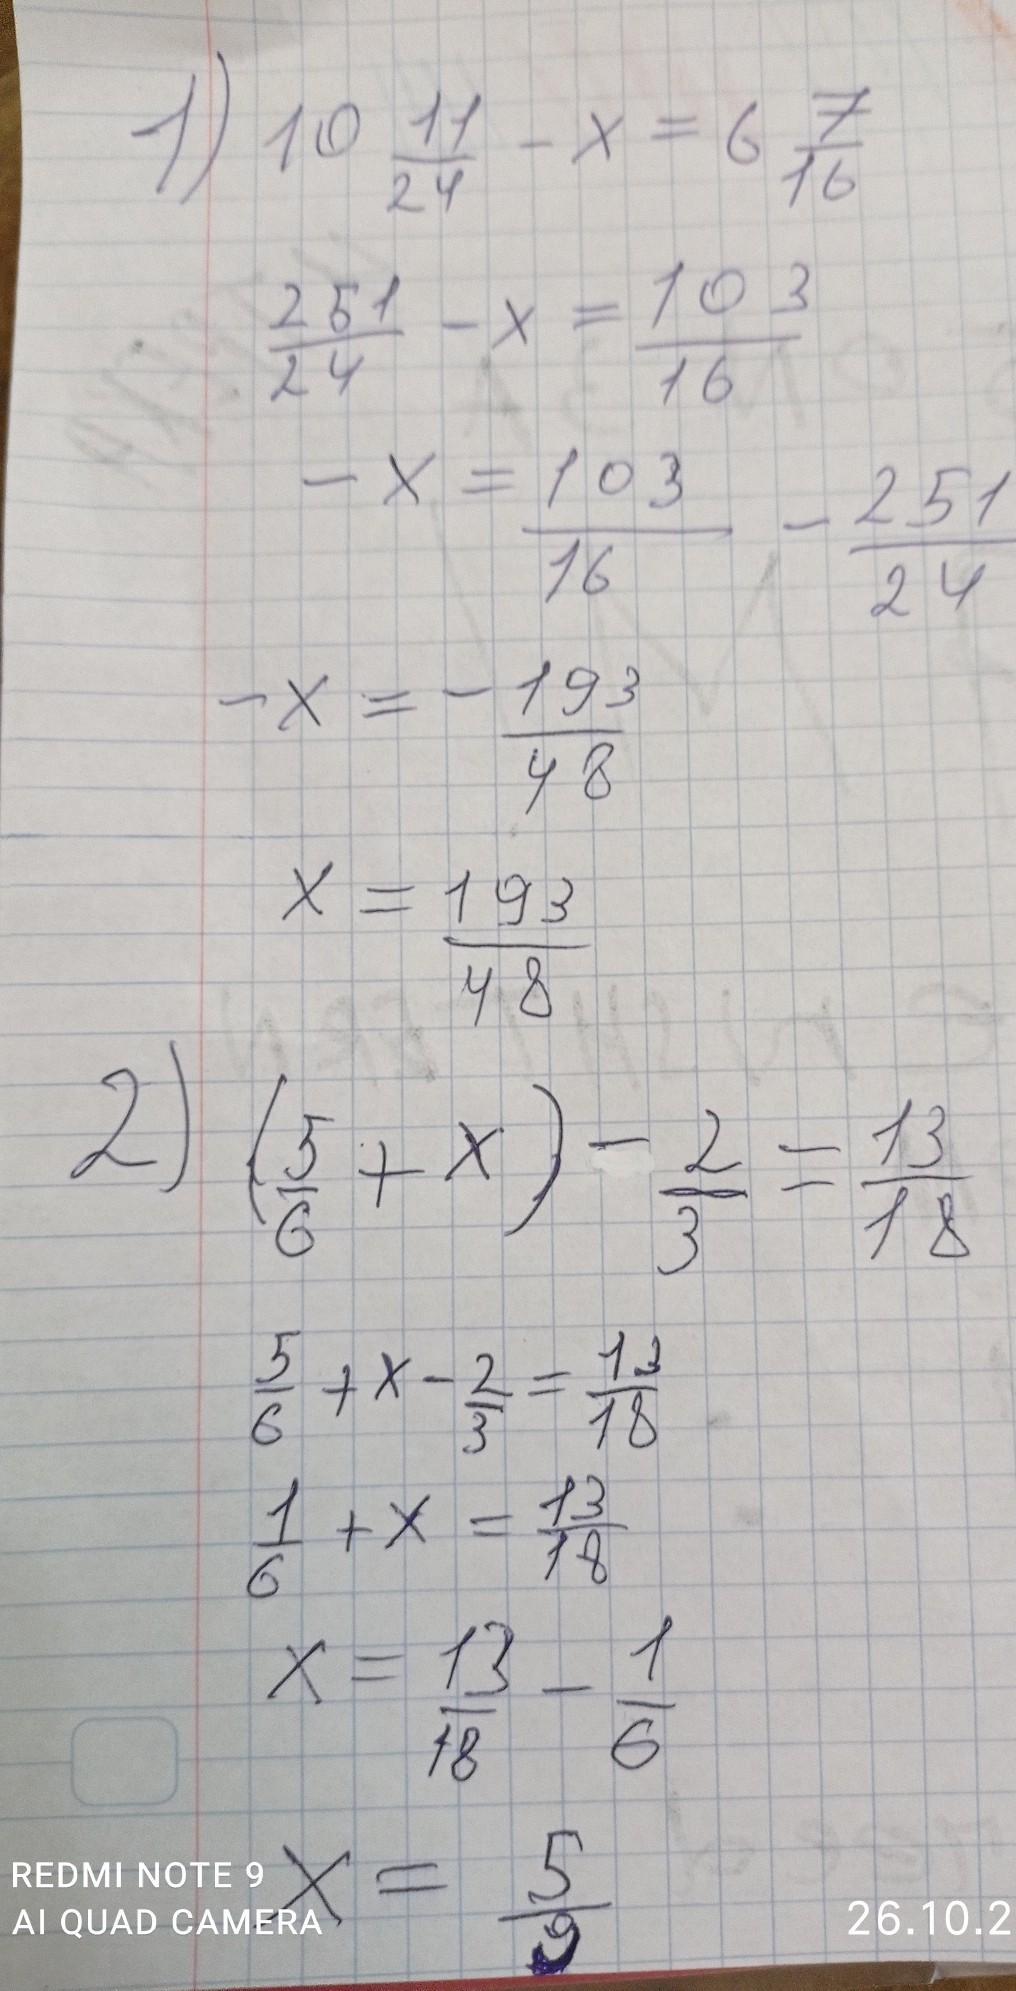 1) 10 11/24 - x = 6 7/16
251/24 - x = 103/16
- x = 103/16 - 251/24
- x = - 193/48
x = 193/48
2) (5/6 + x) - 2/3 = 13/18
5/6 + x - 2/3 = 13/18
1/6 + x = 13/18
x = 13/18 - 1/6
x = 5/9
REDMI NOTE 9
AI QUAD CAMERA
26.10.2